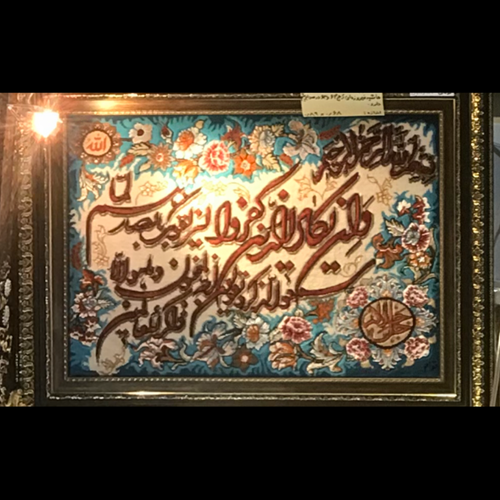 الله
بسم الله الرحمن الرحیم
وان یکاد الذین کفروا لیزلقونک بابصارهم لما
سمعوا الذکر و یقولون انه لمجنون و ما هو الا
ذکر للعالمین